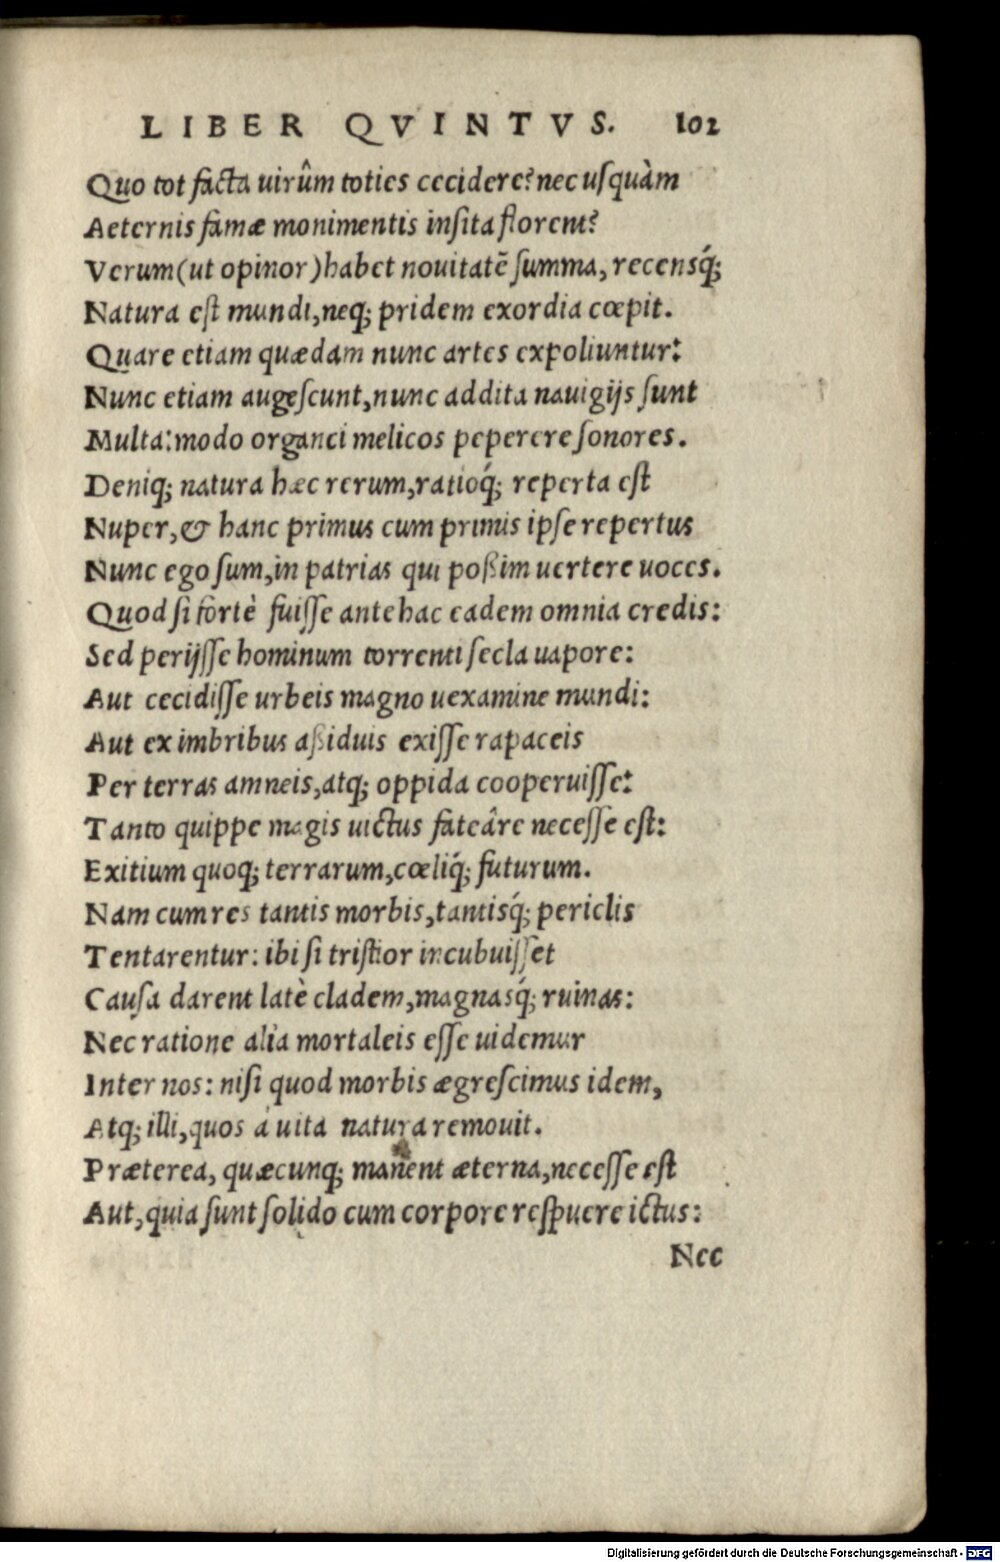 LIBER QVINTVS. 102
Quo tot facta uirûm toties cecidere? nec usquàm
Aeternis famæ monimentis insita florent?
Verum (ut opinor) habet nouitatē summa, recensq́;
Natura est mundi, neq; pridem exordia cœpit.
Quare etiam quædam nunc artes expoliuntur:
Nunc etiam augescunt, nunc addita nauigijs sunt
Multa: modo organci melicos peperere sonores.
Deniq; natura hæc rerum, ratioq́; reperta est
Nuper, & hanc primus cum primis ipse repertus
Nunc ego sum, in patrias qui poßim uertere uoces.
Quod si fortè fuisse antehac eadem omnia credis:
Sed perijsse hominum torrenti secla uapore:
Aut cecidisse urbeis magno uexamine mundi:
Aut ex imbribus aßiduis exisse rapaceis
Per terras amneis, atq; oppida cooperuisse:
Tanto quippe magis uictus fateâre necesse est:
Exitium quoq; terrarum, cœliq́; futurum.
Nam cum res tantis morbis, tantisq́; periclis
Tentarentur: ibi si tristior incubuisset
Causa darent latè cladem, magnasq́; ruinas:
Nec ratione alia mortaleis esse uidemur
Inter nos: nisi quod morbis ægrescimus idem,
Atq; illi, quos à uita natura remouit.
Præterea, quæcunq; manent æterna, necesse est
Aut, quia sunt solido cum corpore respuere ictus:
Nec
Digitalisierung gefördert durch die Deutsche Forschungsgemeinschaft - DFG